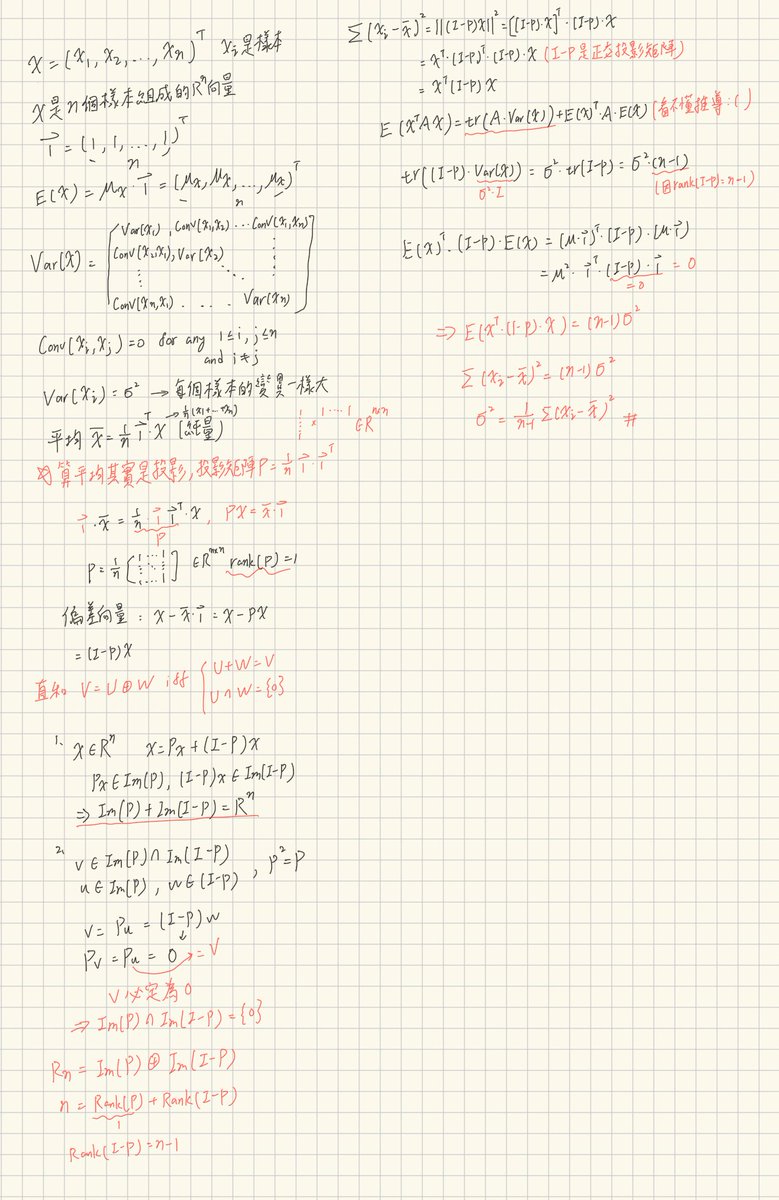 X = (x₁, x₂, ..., xₙ)ᵀ xᵢ是樣本
X是n個樣本組成的Rⁿ向量
1⃗ = (1, 1, ..., 1)ᵀ
n
E(X) = μₓ · 1⃗ = (μₓ, μₓ, ..., μₓ)ᵀ
n
Var(X₁), Conv(X₁,X₂) ... Conv(X₁,Xₙ)
Var(X) = Conv(X₂,X₁), Var(X₂)
Conv(Xₙ,X₁) . . . . Var(Xₙ)
Conv(Xᵢ,Xⱼ) = 0 for any 1≤i,j≤n
and i≠j
Var(Xᵢ) = σ² → 每個樣本的變異一樣大
→ 1/n(x₁+...+xₙ)
平均 x̄ = 1/n 1⃗ᵀ · X (純量)
1 ... 1
∈Rⁿˣⁿ
算平均其實是投影,投影矩陣P = 1/n 1⃗ · 1⃗ᵀ
1⃗ · x̄ = 1/n · 1⃗ 1⃗ᵀ · X, PX = x̄ · 1⃗
P
P = 1/n [1 ... 1] ∈Rⁿˣⁿ rank(P) = 1
偏差向量 : X - x̄ · 1⃗ = X - PX
= (I-P)X
直和 V = U ⊕ W iff { U+W = V
U∩W = {0}
1. X∈Rⁿ X = Px + (I-P)x
Px∈Im(P), (I-P)x∈Im(I-P)
⇒ Im(P) + Im(I-P) = Rⁿ
2. v∈Im(P)∩Im(I-P)
u∈Im(P), w∈(I-P) , P² = P
v = Pu = (I-P)w
Pv = Pu = 0 = v
v必定為0
⇒ Im(P)∩Im(I-P) = {0}
Rn = Im(P) ⊕ Im(I-P)
n = Rank(P) + Rank(I-P)
1
Rank(I-P) = n-1
Σ(xᵢ-x̄)² = ||(I-P)X||² = [(I-P)·X]ᵀ · (I-P)·X
= Xᵀ·(I-P)ᵀ·(I-P)·X (I-P是正交投影矩陣)
= Xᵀ(I-P)X
E(XᵀAX) = tr(A·Var(X)) + E(X)ᵀ·A·E(X) (看不懂推導:()
tr((I-P)·Var(X)) = σ²·tr(I-P) = σ²·(n-1)
σ²·I
(因rank(I-P)=n-1)
E(X)ᵀ·(I-P)·E(X) = (μ·1⃗)ᵀ·(I-P)·(μ·1⃗)
= μ²·1⃗ᵀ·(I-P)·1⃗ = 0
=0
⇒ E(Xᵀ·(I-P)·X) = (n-1)σ²
Σ(xᵢ-x̄)² = (n-1)σ²
σ² = 1/(n-1) Σ(xᵢ-x̄)² #